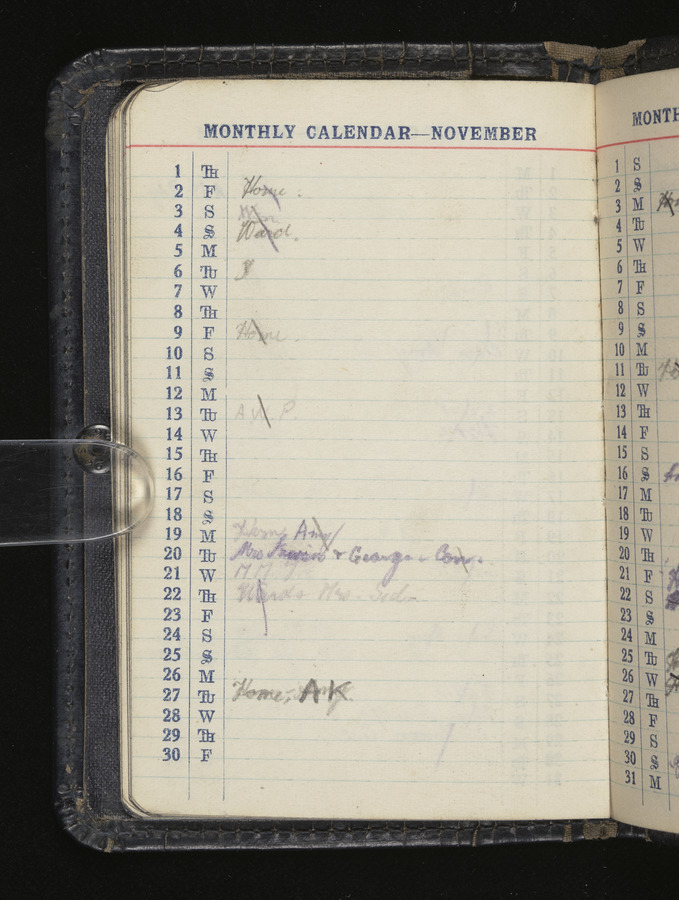 MONTHLY CALENDAR—NOVEMBER
1 TH
2 F Home.
3 S
4 S Ward.
5 M
6 TU
7 W
8 TH
9 F Home.
10 S
11 S
12 M
13 TU A.W.P.
14 W
15 TH
16 F
17 S
18 S
19 M Home Amy
20 TU Mrs & George
21 W
22 TH Wards Mrs.
23 F
24 S
25 S
26 M
27 TU Home, AK
28 W
29 TH
30 F
MONTH
1 S
2 S
3 M
4 TU
5 W
6 TH
7 F
8 S
9 S
10 M
11 TU
12 W
13 TH
14 F
15 S
16 S
17 M
18 TU
19 W
20 TH
21 F
22 S
23 S
24 M
25 TU
26 W
27 TH
28 F
29 S
30 S
31 M